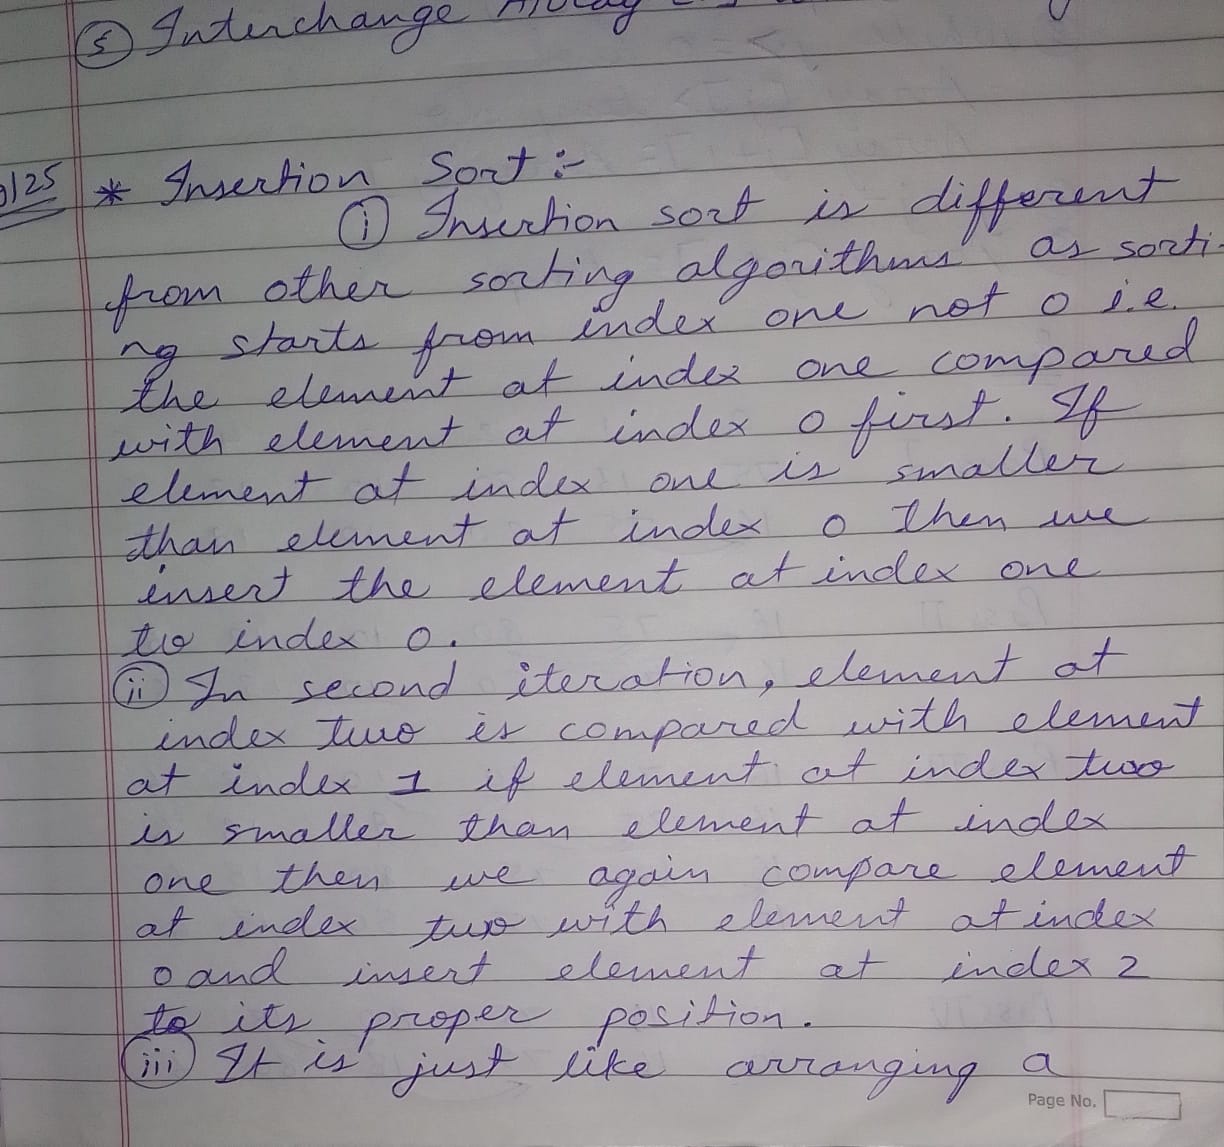 ⑤ Interchange
125
* Insertion Sort :-
ⓘ Insertion sort is different
from other sorting algorithms as sorti-
ng starts from index one not 0 i.e.
the element at index one compared
with element at index 0 first. If
element at index one is smaller
than element at index 0 then we
insert the element at index one
to index 0.
(ii) In second iteration, element at
index two is compared with element
at index 1 if element at index two
is smaller than element at index
one then we again compare element
at index two with element at index
0 and insert element at index 2
to its proper position.
(iii) It is just like arranging a
Page No.